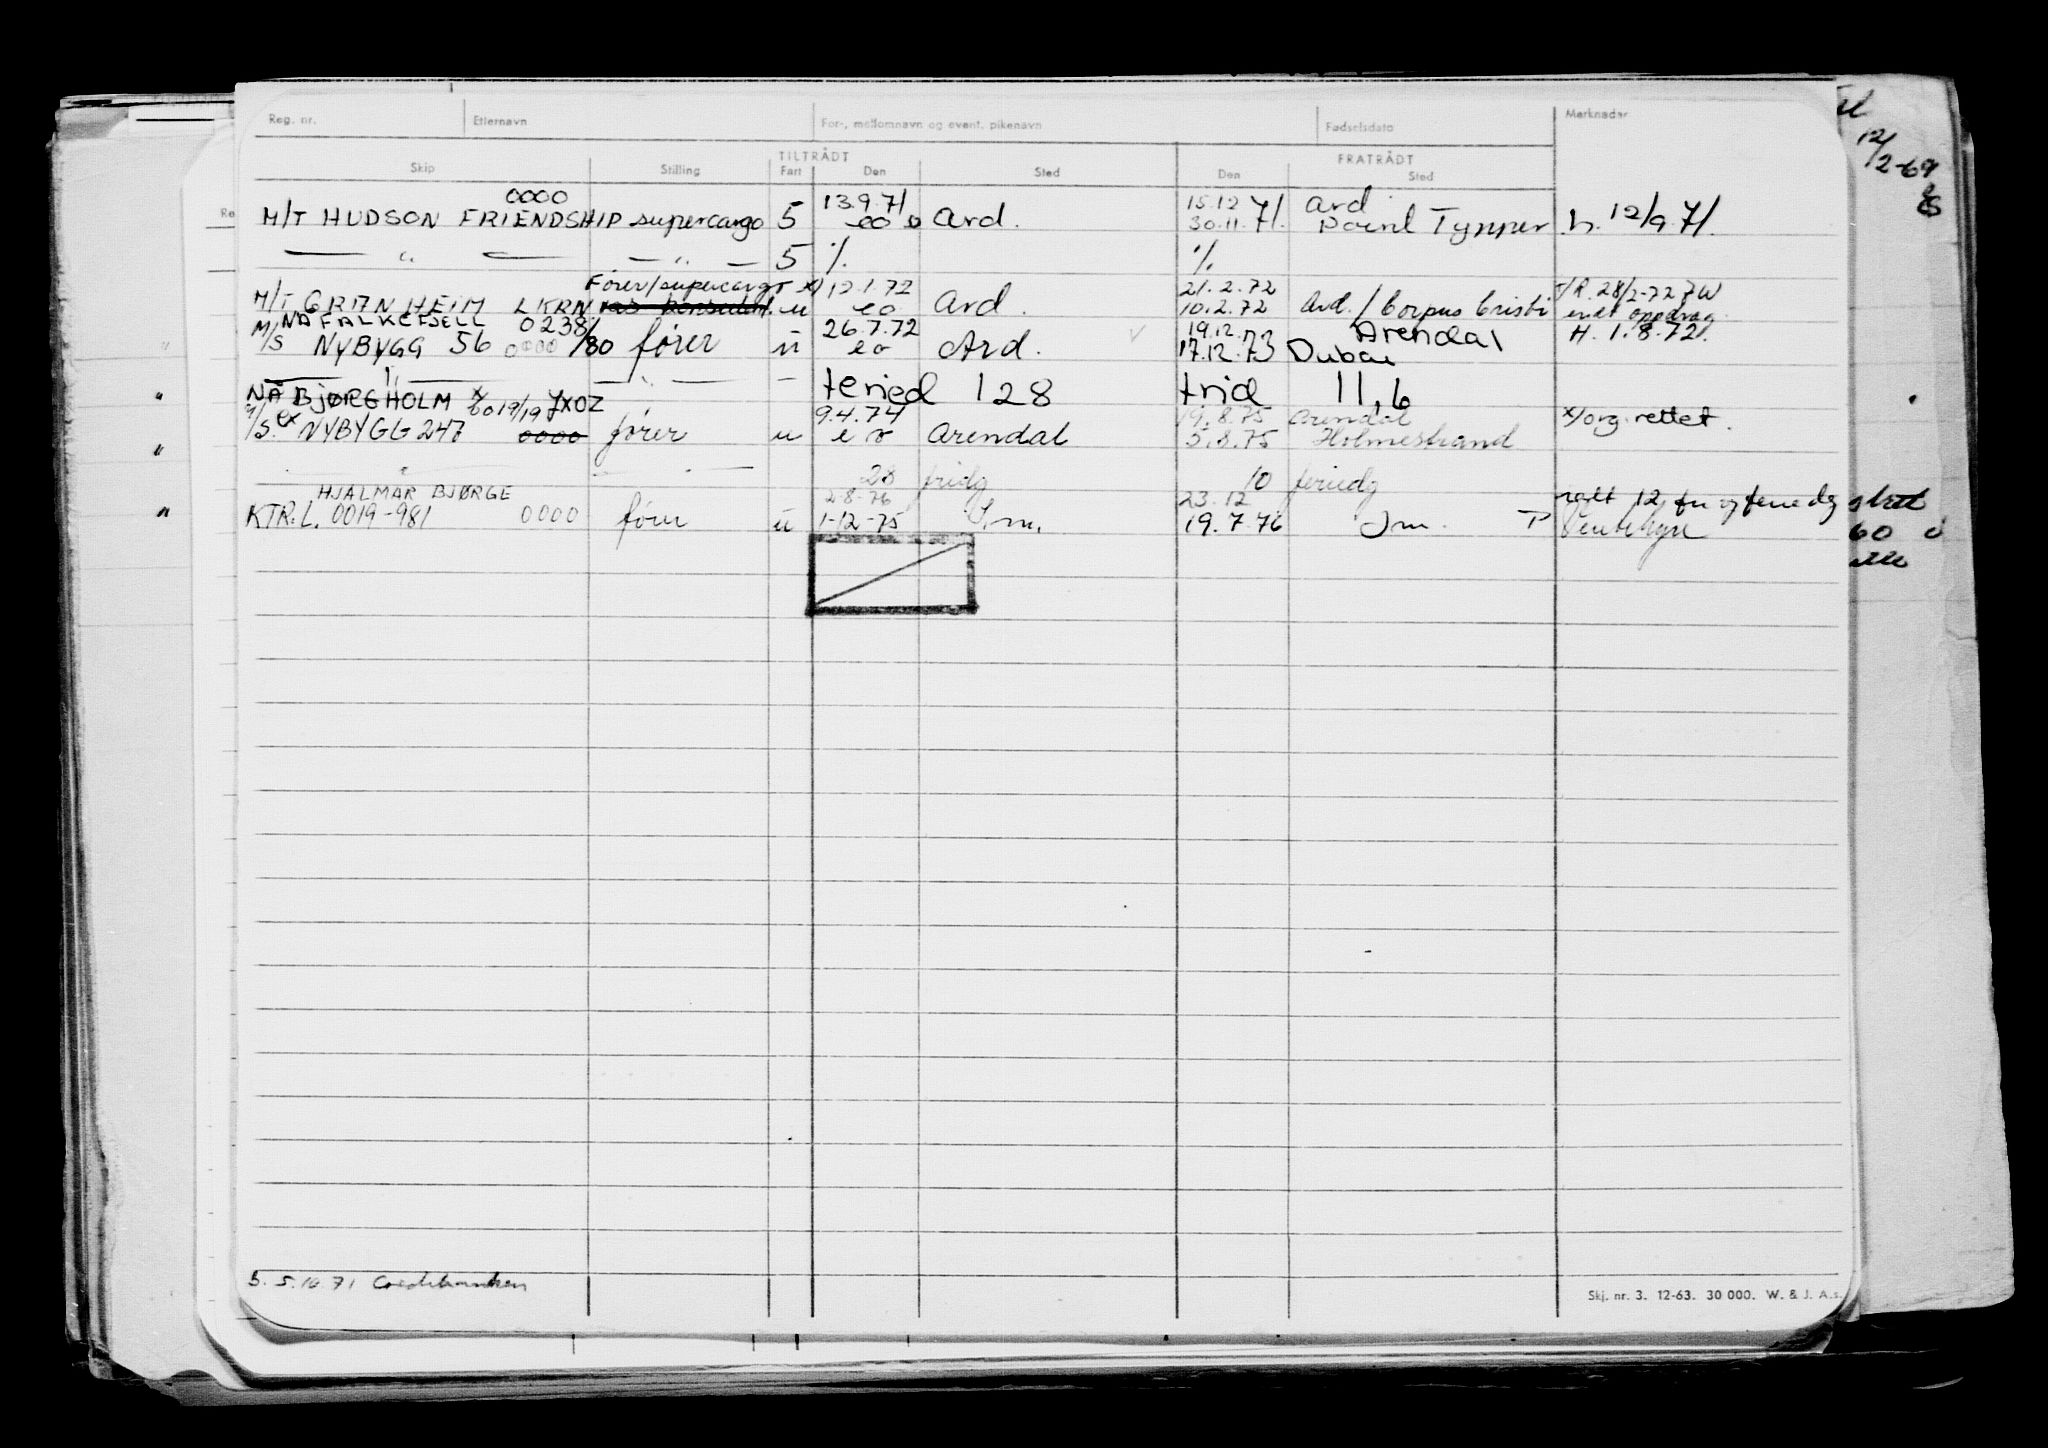 Reg. nr. Etternavn For-, mellomnavn og event. pikenavn Fødselsdato Merknader
TILTRÅDT FRATRÅDT
Skip Stilling Fart Den Sted Den Sted
0000 13.9.71 15.12 Ard
M/T HUDSON FRIENDSHIP supercargo 5 eo Ard. 30.11.71. Point Tynner h. 12/9.71.
— " — — " — 5 %. %.
Fører/supercargo x) 12.1.72 21.2.72 R. 28/2-72
M/T GRANHEIM LKRN u eo Ard. 10.2.72 Ard. / Corpus Cristi endt oppdrag.
NA FALKEFJELL 0238/80 26.7.72 19.12.73 Arendal H. 1.8.72.
M/S NYBYGG 56 0000 fører u eo Ard. 17.12.73 Dubai
— " — — " — — feried 128 frid 11,6
NA BJØRGHOLM x 6019/19 JXOZ 9.4.74 19.8.75 Arendal x/org. rettet.
M/S. ex NYBYGG 247 0000 fører u eo Arendal 5.8.75 Holmestrand
— " — — " — 28 fridg 10 feriedg
HJALMAR BJØRGE 2-8-76 23.12
KTR.L. 0019-981 0000 fører u 1-12-75 19.7.76
S. 5.10.71
Skj. nr. 3. 12-63. 30 000. W. & J. A.s.
12/2-69
60